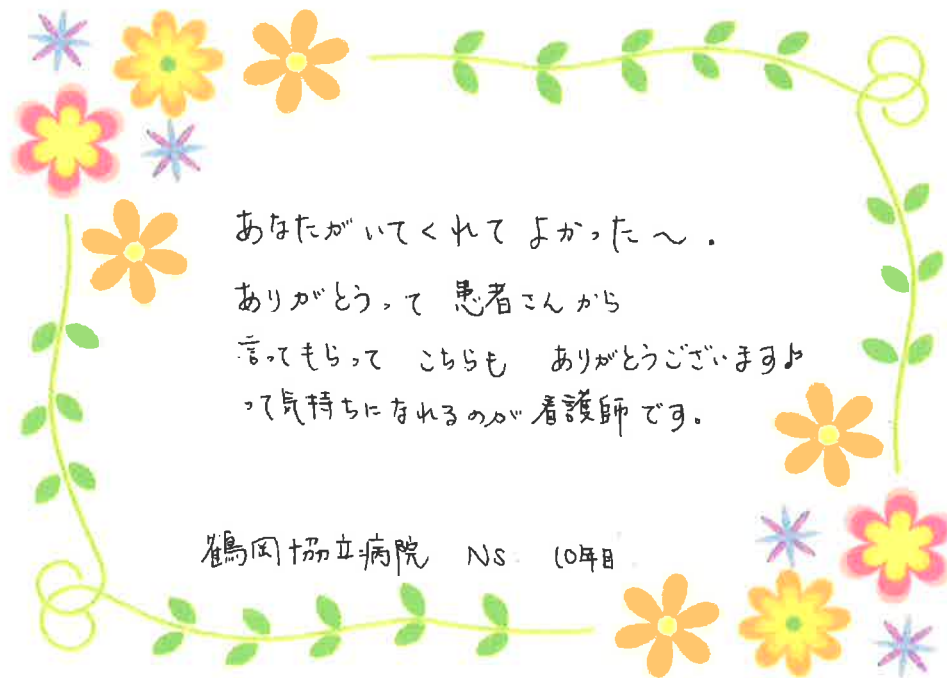 あなたがいてくれて よかった〜.
ありがとうって 患者さんから
言ってもらって こちらも ありがとうございます♪
って気持ちになれるのが 看護師です。
鶴岡協立病院 NS 10年目